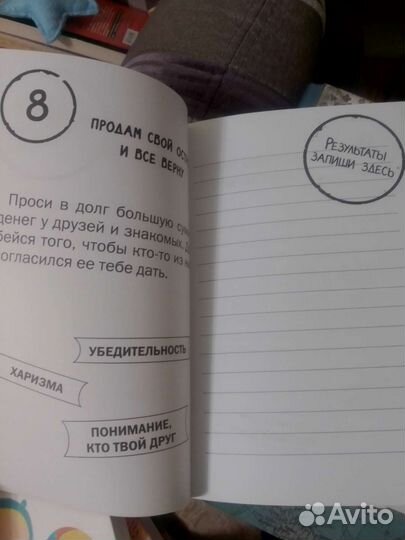 8
ПРОДАМ СВОЙ
И ВСЕ ВЕРНУ
Проси в долг большую
денег у друзей и знакомых.
того, чтобы кто-то из
ее тебе дать.
УБЕДИТЕЛЬНОСТЬ
ХАРИЗМА
ПОНИМАНИЕ,
КТО ТВОЙ ДРУГ
РЕЗУЛЬТАТЫ
ЗАПИШИ ЗДЕСЬ
Avito